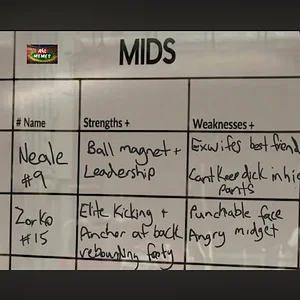 AFL
MEMES
MIDS
# Name
Strengths +
Weaknesses +
Neale
#9
Ball magnet +
Leadership
Exwifes best friend
Cant keep dick in his
pants
Zorko
#15
Elite Kicking +
Anchor at back
rebounding footy
Punchable face
Angry midget